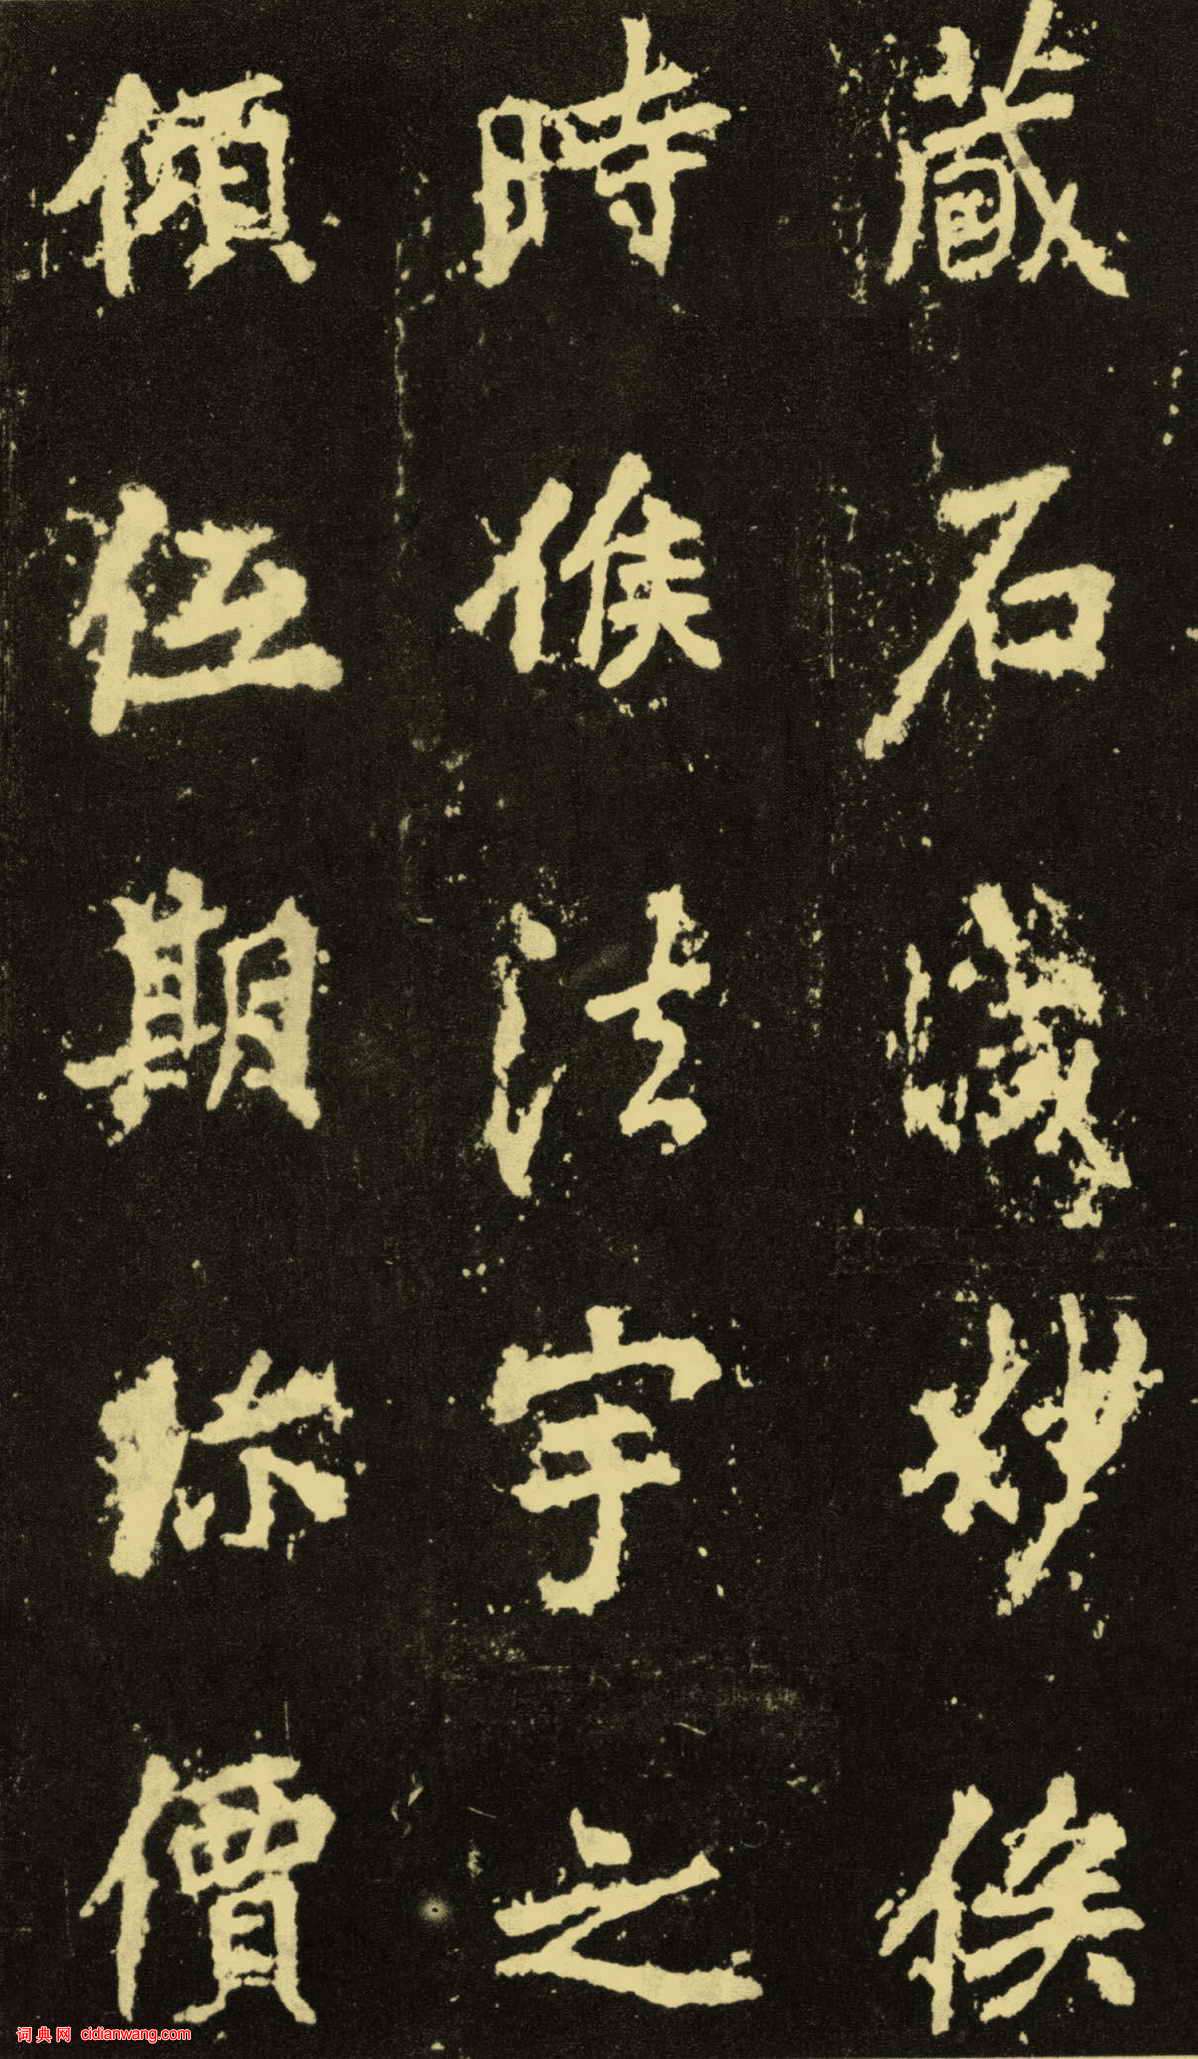 藏石妙俟
時候法宇之
傾期珎價
词典网 cidianwang.com